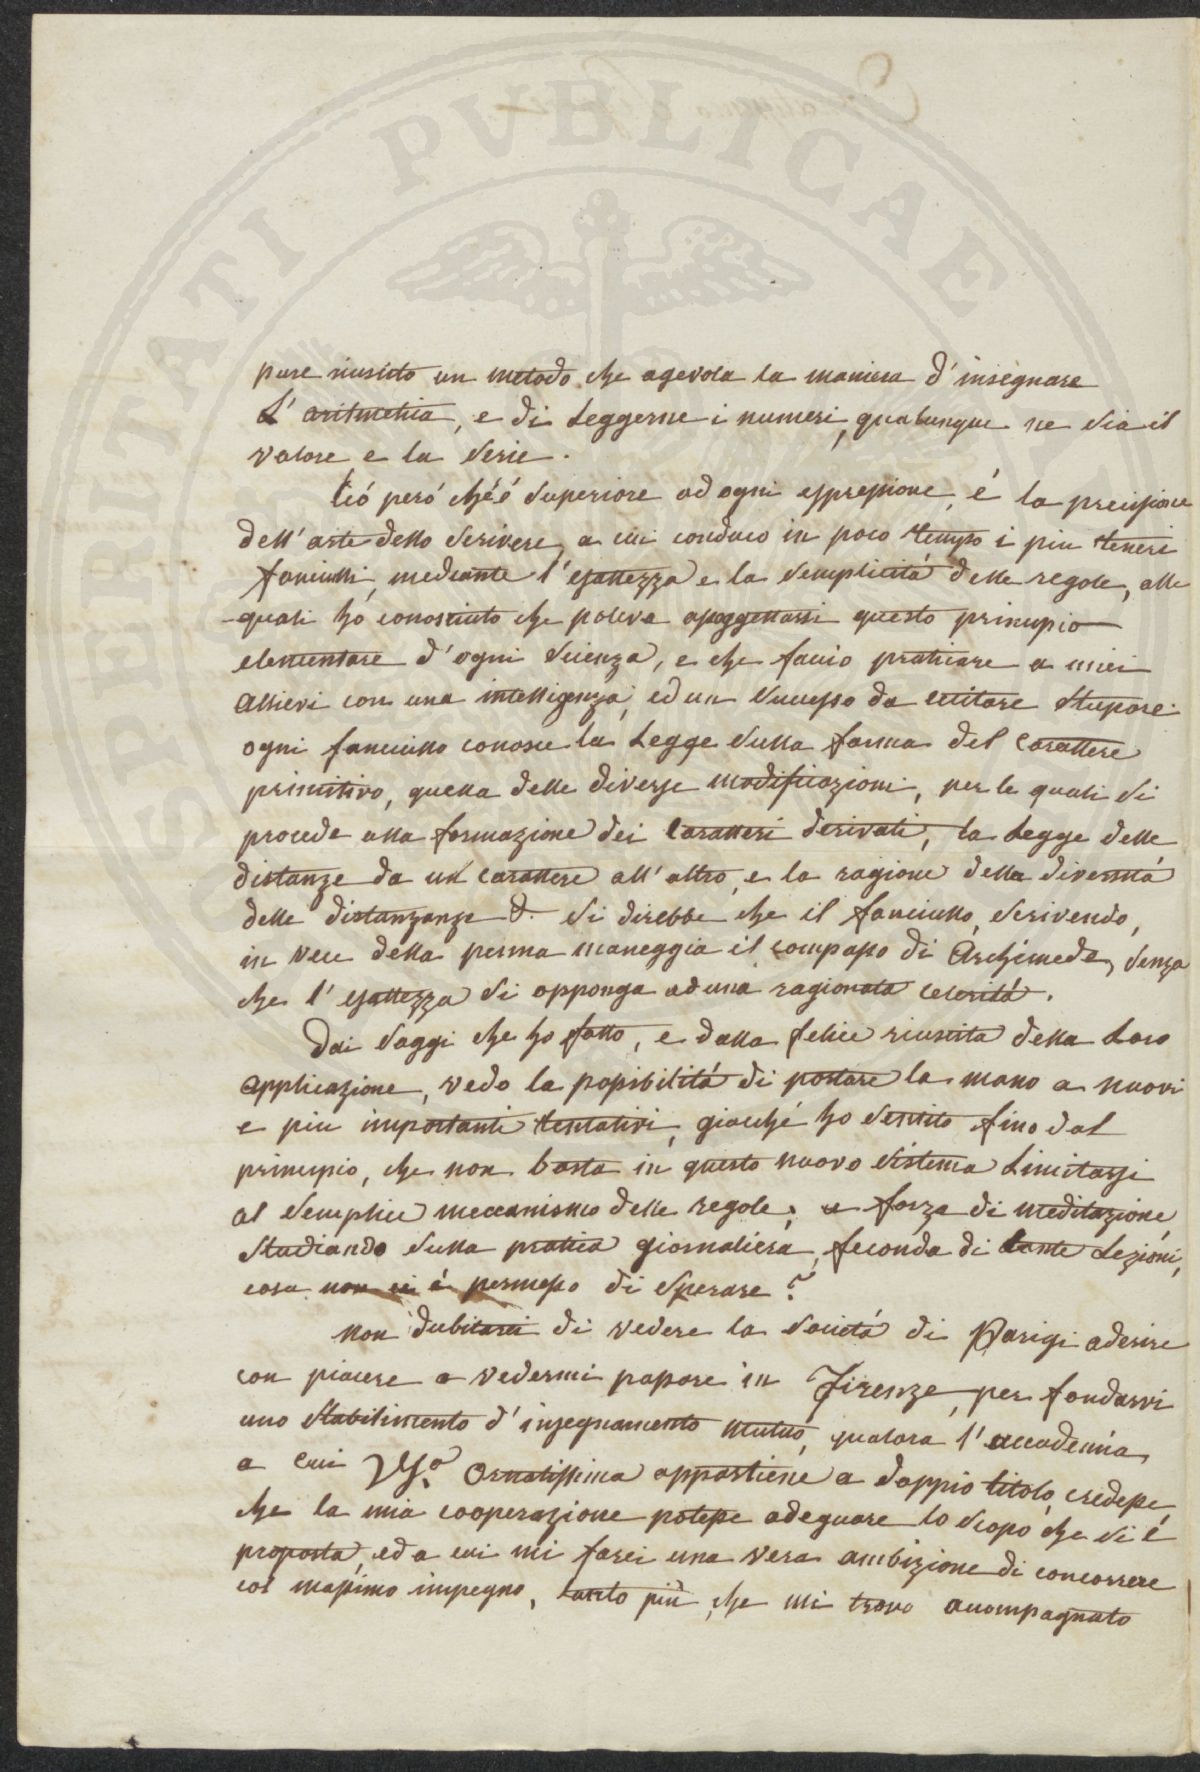 PROSPERITATI PUBLICAE
pure riuscito un metodo che agevola la maniera d'insegnare
L'aritmetica, e di Leggerne i numeri, qualunque ne sia il
valore e la Serie.
Ció peró ch'é superiore ad ogni espressione, é la precisione
dell'arte dello Scrivere, a cui conduco in poco tempo i piu teneri
fanciulli, mediante l'esattezza e la Semplicitá delle regole, alle
quali hó conosciuto che poteva apoggettarsi questo principio
elementare d'ogni Scienza, e che faccio praticare a miei
Allievi con una intelligenza, ed un Successo da eccitare Stupore.
ogni fanciullo conosce la Legge Sulla forma del Carattere
primitivo, quella delle diverse modificazioni, per le quali Si
procede alla formazione dei Caratteri derivati, la Legge delle
distanze da un carattere all'altro, e la ragione della diversitá
delle distanzanze &. Si direbbe che il fanciullo, Scrivendo,
in vece della penna maneggia il compasso di Archimede, Senza
che l'esattezza Si opponga ad una ragionata Celeritá.
Dai Saggi che ho fatto, e dalla felice riuscita della Loro
Applicazione, vedo la possibilitá di portare la mano a nuovi
e piu importanti tentativi, giacché ho Sentito fino dal
principio, che non basta in questo nuovo Sistema Limitarsi
al Semplice meccanismo delle regole; a forza di meditazione
Studiando Sulla pratica giornaliera, feconda di tante Lezioni,
cosa non ci é permesso di Sperare?
Non dubitarei di vedere la Societá di Parigi aderire
con piacere a vedermi passare in Firenze, per fondarvi
uno Stabilimento d'insegnamento mutuo, qualora l'accademia,
a cui VS.a Ornatissima appartiene a doppio titolo, credesse
che la mia cooperazione potesse adeguare lo Scopo che Si é
proposta, ed a cui mi farei una vera ambizione di concorrere
col massimo impegno, tanto piú, che mi trovo accompagnato